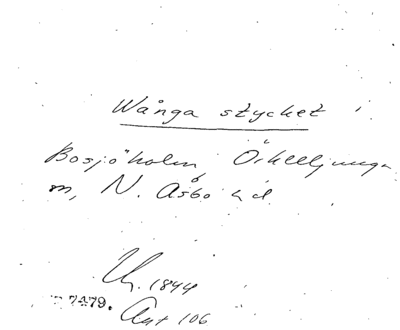 Wånga stycket i
Bosjöholm Örkelljunga
m, N. Åsbo hd
Uh. 1844
7479. Aut 106